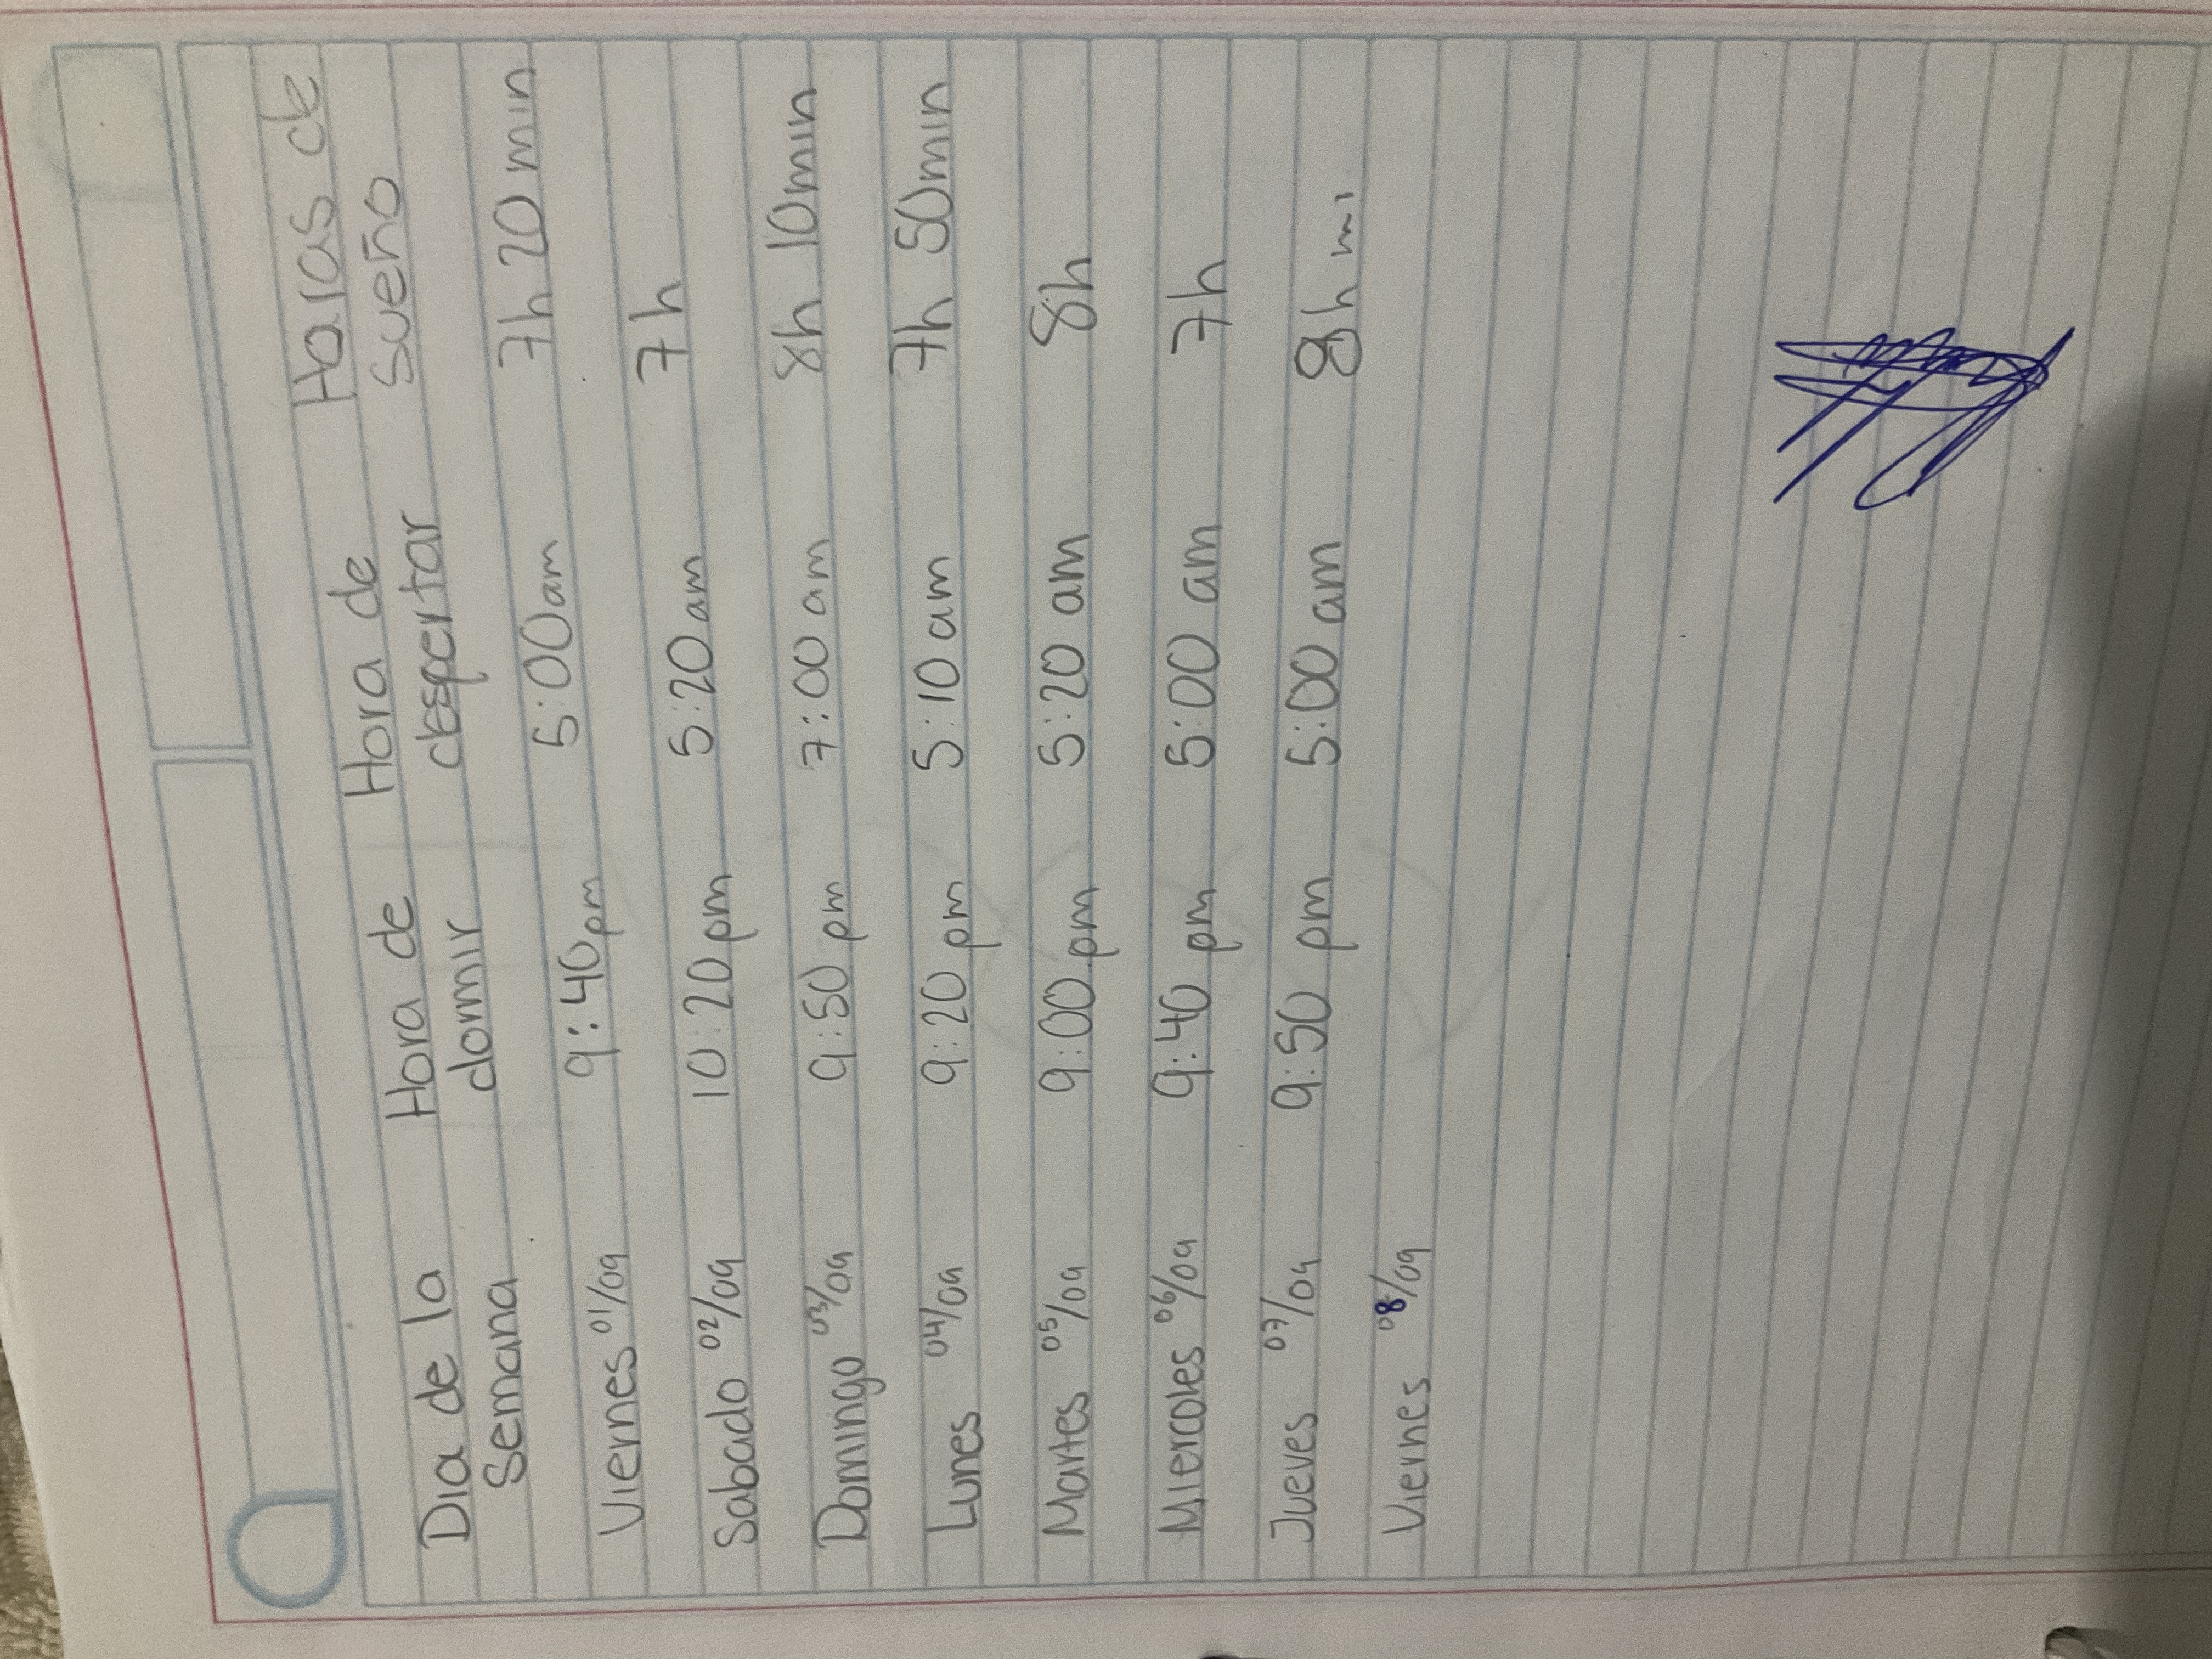 Dia de la Semana Hora de domir Hora de despertar Horas de sueño
Viernes 01/09 9:40pm 5:00am 7h 20min
Sabado 02/09 10:20pm 5:20am 7h
Domingo 03/09 9:50 pm 7:00 am 8h 10min
Lunes 04/09 9:20 pm 5:10 am 7h 50min
Martes 05/09 9:00 pm 5:20 am 8h
Miercoles 06/09 9:40 pm 5:00 am 7h
Jueves 07/09 9:50 pm 5:00 am 8h mi
Viernes 08/09